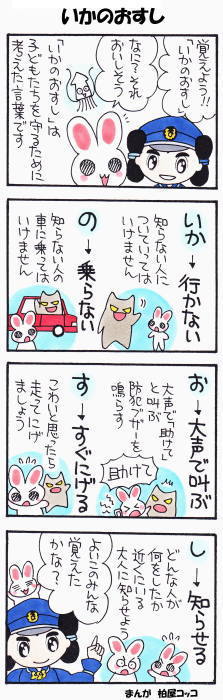 いかのおすし
覚えよう!!
「いかのおすし」
なに?それ
おいしそう
「いかのおすし」は
子どもたちを守るために
考えた言葉です
いか→行かない
知らない人に
ついていっては
いけません
の→乗らない
知らない人の
車に乗っては
いけません
お→大声で叫ぶ
大声で「助けて」
と叫ぶ
防犯ブザーを
鳴らす
助けて
す→すぐにげる
こわいと思ったら
走ってにげ
ましょう
し→知らせる
どんな人が
何をしたか
近くにいる
大人に知らせよう
よいこのみんな
覚えた
かな?
まんが 柏屋コッコ